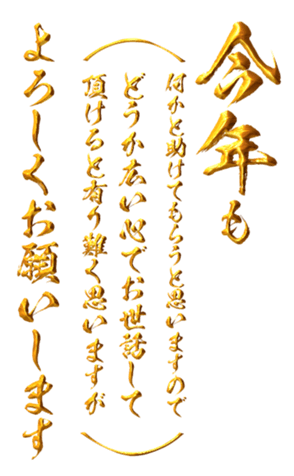 今年も
(何かと助けてもらうと思いますので
どうか広い心でお世話して
頂けると有り難く思いますが)
よろしくお願いします